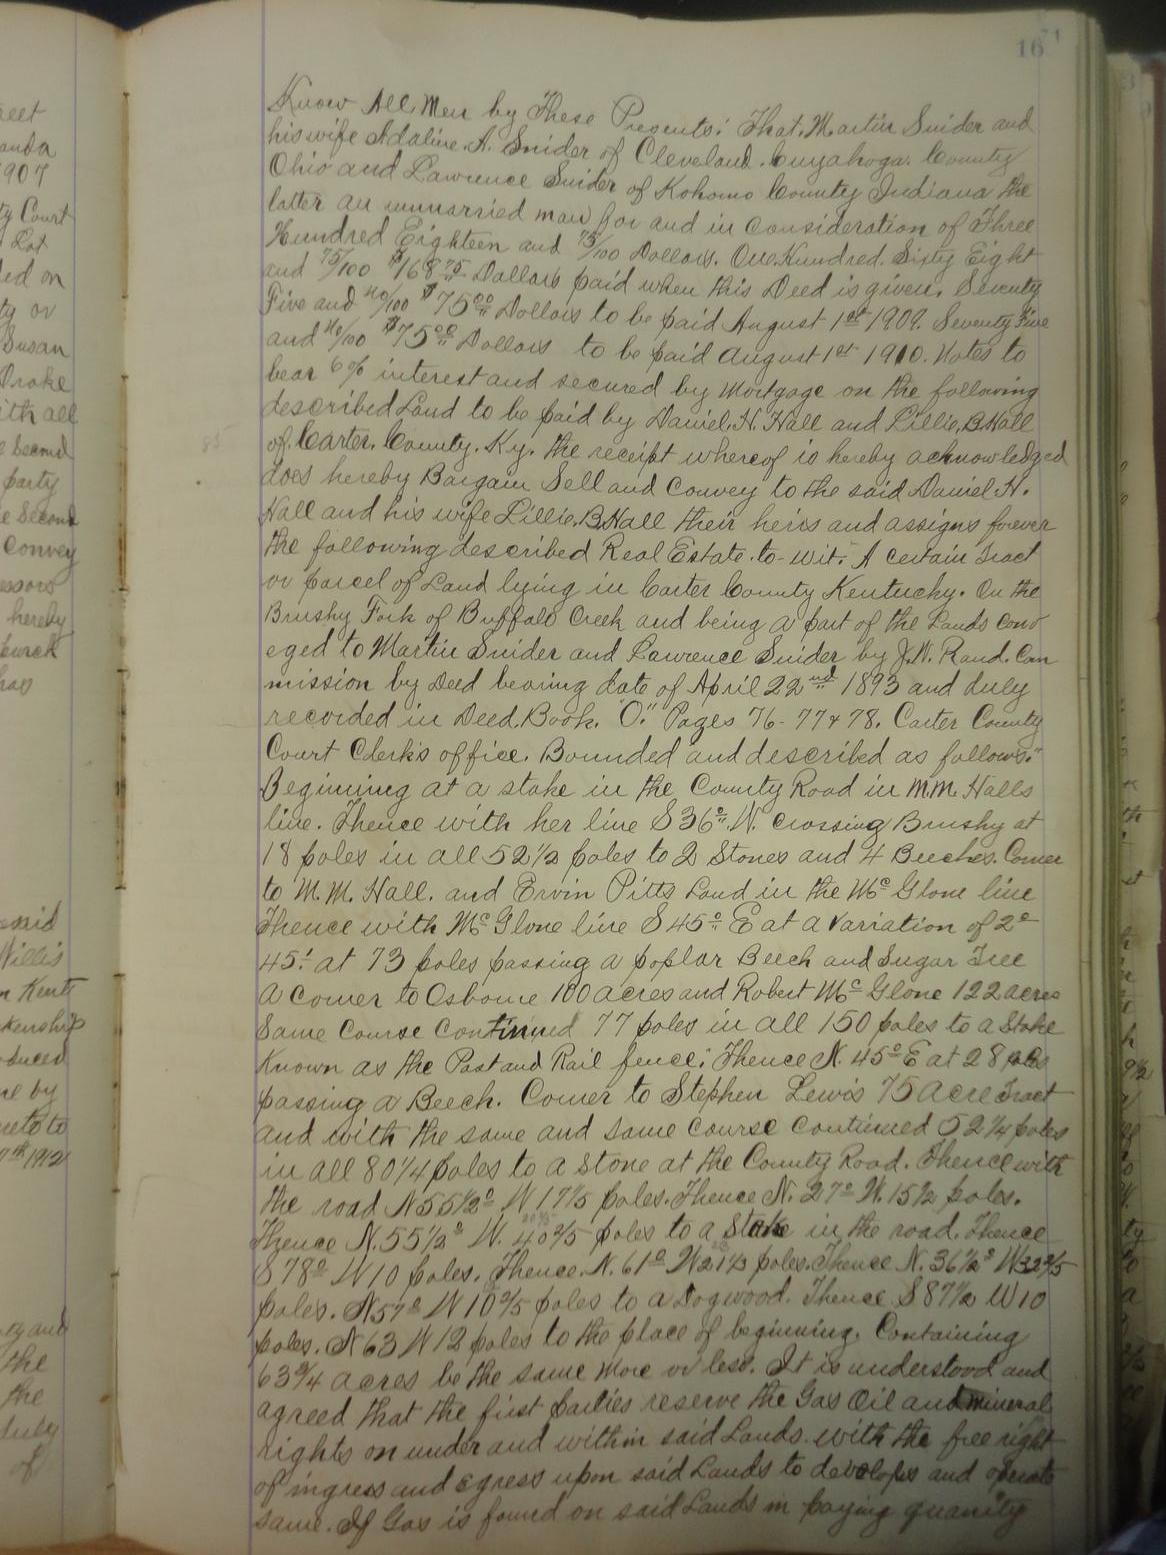 16
71
Know All Men by These Presents: That Martin Snider and
his wife Adaline. A. Snider of Cleveland. Cuyahoga. County
Ohio and Lawrence Snider of Kohomo County Indiana the
latter an unmarried man for and in consideration of Three
Hundred Eighteen and 75/100 Dollars. One Hundred. Sixty Eight
and 75/100 $168 75 Dollars paid when this Deed is given. Seventy
Five and no/100 $75 00 Dollars to be paid August 1st 1909. Seventy Five
and no/100 $75 00 Dollars to be paid August 1st 1910. Notes to
bear 6% interest and secured by Mortgage on the following
described Land to be paid by Daniel. H. Hall and Lillie. B. Hall
of. Carter. County. Ky. the receipt whereof is hereby acknowledged
does hereby Bargain Sell and Convey to the said Daniel H.
Hall and his wife Lillie. B. Hall their heirs and assigns forever
the following described Real Estate. to-wit: A certain Tract
or parcel of Land lying in Carter County Kentuchy. On the
Brushy Fork of Buffalo Creek and being a part of the Lands conv
eyed to Martin Snider and Lawrence Snider by J.W. Rand. Com
mission by Deed bearing date of April 22nd 1893 and duly
recorded in Deed. Book. "O." Pages 76-77 & 78. Carter County
Court Clerks office. Bounded and described as follows:
Beginning at a stake in the County Road in M.M. Halls
line. Thence with her line S 36° W. crossing Brushy at
18 poles in all 52 1/2 poles to 2 Stones and 4 Beeches. Corner
to M. M. Hall. and Ervin Pitts Land in the McGlone line
Thence with McGlone line S 45° E at a variation of 2°
45' at 73 poles passing a poplar Beech and Sugar Tree
a corner to Osborne 100 acres and Robert McGlone 122 acres
Same Course Continued 77 poles in all 150 poles to a Stake
Known as the Post and Rail fence; Thence N. 45° E at 28 poles
passing a Beech. Corner to Stephen Lewis 75 acre Tract
and with the same and same course continued 52 1/4 poles
in all 80 1/4 poles to a Stone at the County Road. Thence with
the road N 55 1/2° W 17 1/5 poles. Thence N. 27° W. 15 1/2 poles.
Thence N. 55 1/2° W. 40 2/5 poles to a Stake in the road. Thence
S 78° W 10 poles. Thence. N. 61° W 21 1/3 poles. Thence N. 36 1/2° W 32 2/5
poles. N 57° W 10 2/5 poles to a Dogwood. Thence S 87 1/2 W 10
poles. N 63 W 12 poles to the place of beginning. Containing
63 3/4 acres be the same more or less. It is understood and
agreed that the first parties reserve the Gas Oil and mineral
rights on under and within said Lands. with the free right
of ingress and egress upon said Lands to develope and operate
same. If Gas is found on said Lands in paying quanity